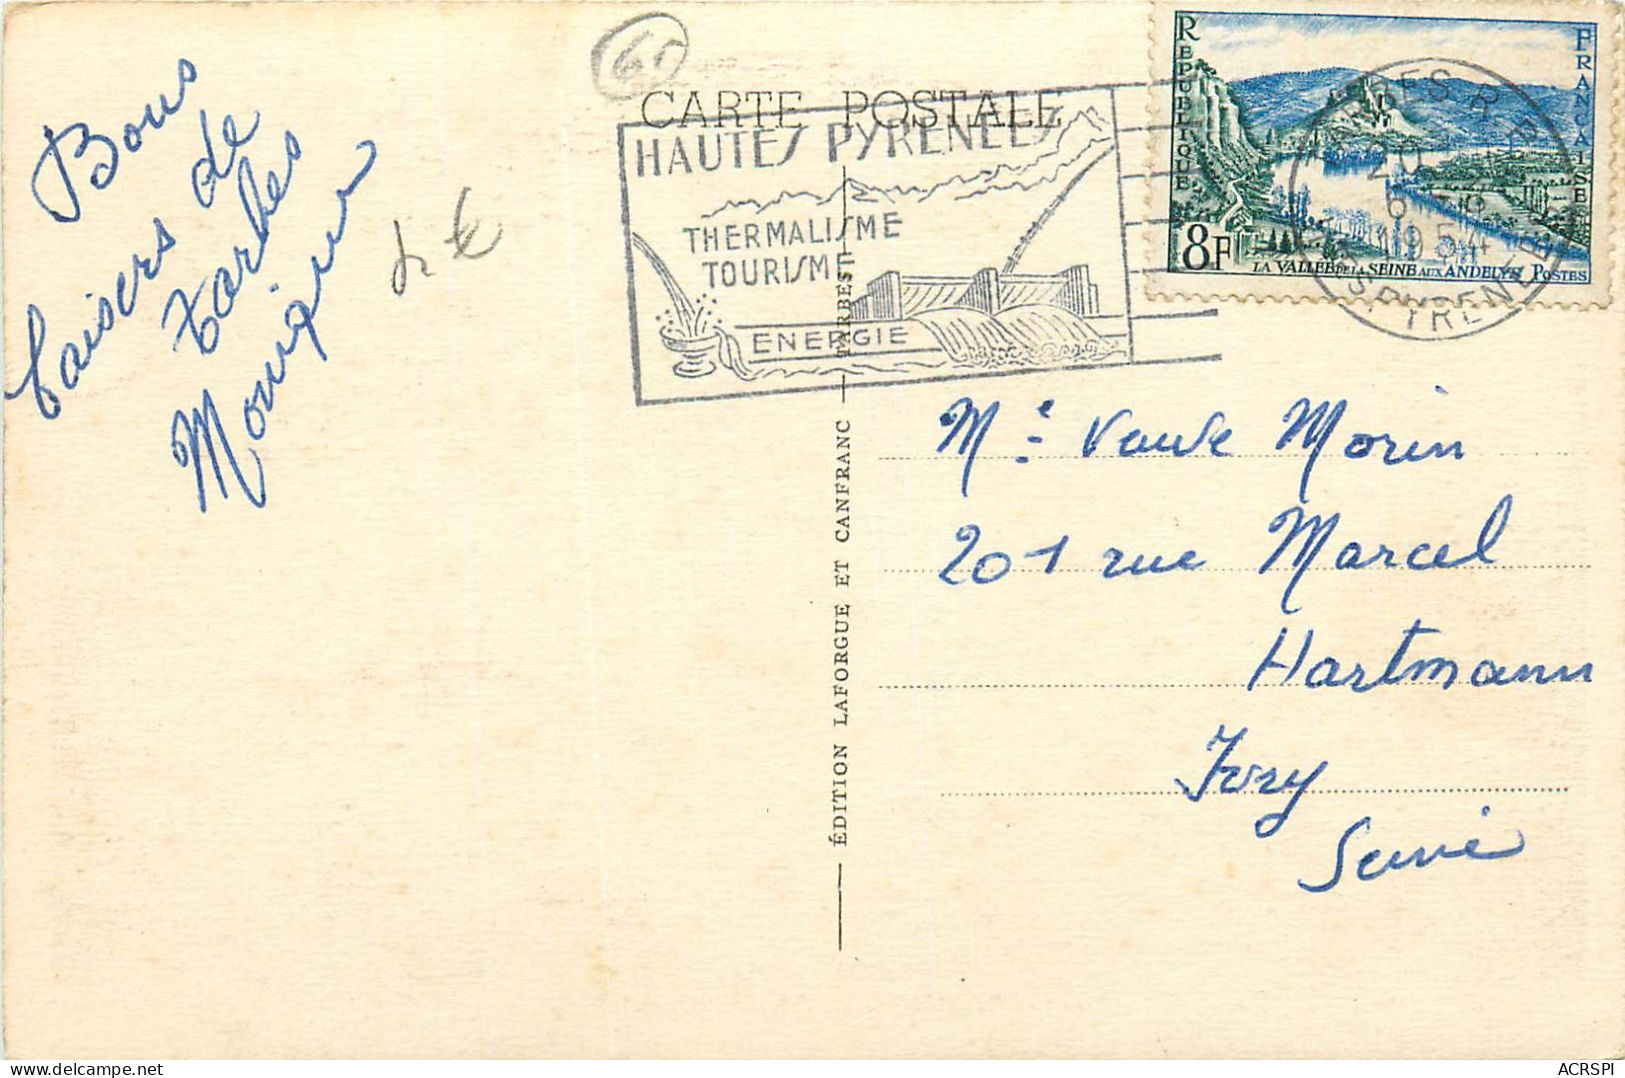 Bons
baisers de
Tarbes
Monique
CARTE POSTALE
HAUTES PYRENEES
THERMALISME
TOURISME
ENERGIE
REPUBLIQUE
FRANCAISE
8F
LA VALLEE DE LA SEINE AUX ANDELYS POSTES
TARBES R.P.
20
6
1954
HTES PYRENEES
TARBES
ÉDITION LAFORGUE ET CANFRANC
Me Vauve Morin
201 rue Marcel
Hartmann
Ivry
Seine
ACRSPI